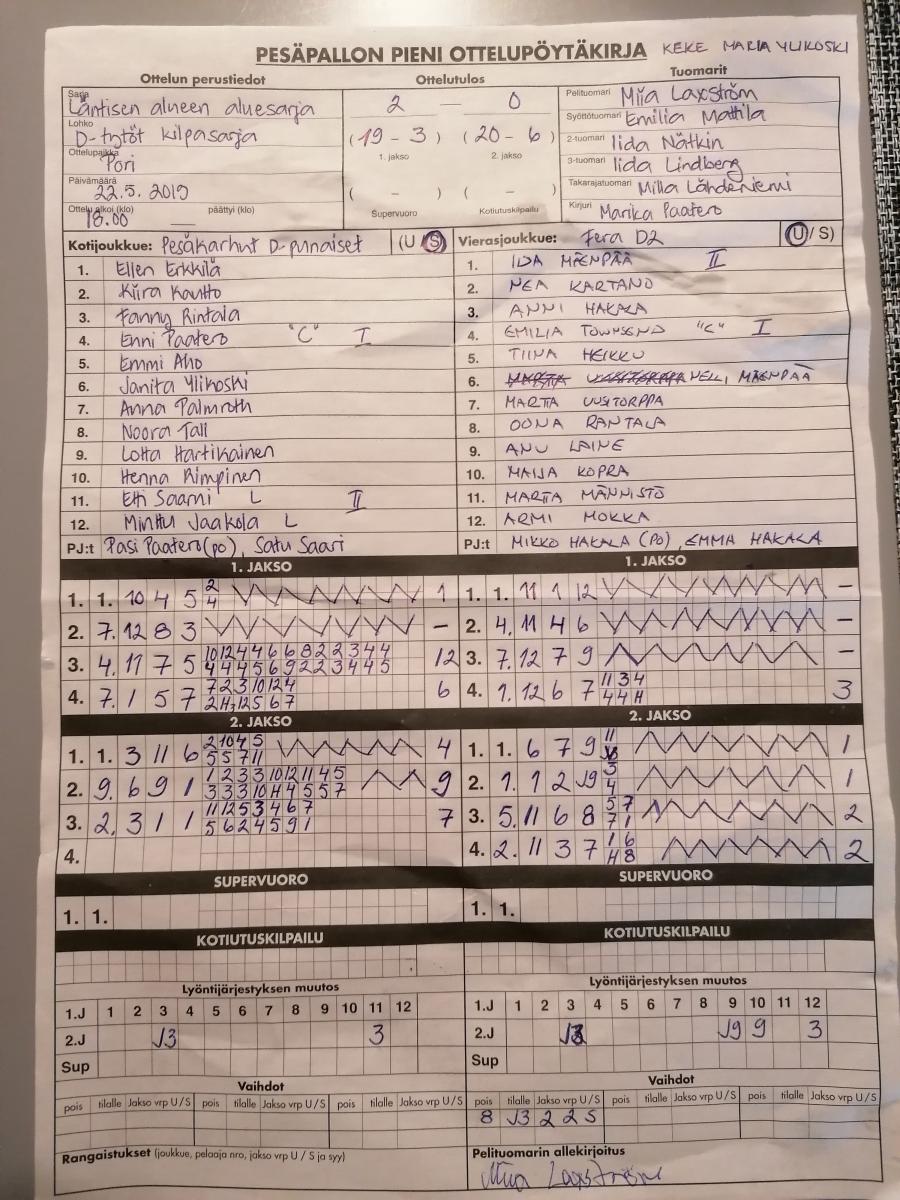 PESÄPALLON PIENI OTTELUPÖYTÄKIRJA KEKE MARIA YLIKOSKI
Ottelun perustiedot Ottelutulos Tuomarit
Sarja Läntisen alueen aluesarja
Lohko D-tytöt kilpasarja
Ottelupaikka Pori
Päivämäärä 22.5.2019
Ottelu alkoi (klo) 18.00 päättyi (klo)
2 — 0
(19 - 3) (20 - 6)
1. jakso 2. jakso
( - ) ( - )
Supervuoro Kotiutuskilpailu
Pelituomari Miia Laxström
Syöttötuomari Emilia Mattila
2-tuomari Iida Nätkin
3-tuomari Iida Lindberg
Takarajatuomari Milla Lähdeniemi
Kirjuri Marika Paatero
Kotijoukkue: Pesäkarhut D-punaiset (U/S)
1. Ellen Erkkilä
2. Kiira Kautto
3. Fanny Rintala
4. Enni Paatero "C" I
5. Emmi Aho
6. Janita Ylikoski
7. Anna Palmroth
8. Noora Tali
9. Lotta Hartikainen
10. Henna Rimpinen
11. Etti Saarni L II
12. Minttu Jaakola L
PJ:t Pasi Paatero (po), Satu Saari
Vierasjoukkue: Fera D2 (U/S)
1. IDA MÄENPÄÄ II
2. NEA KARTANO
3. ANNI HAKALA
4. EMILIA TOWNSEND "C" I
5. TIINA HEIKKU
6. NELLI MÄENPÄÄ
7. MARTTA UUSITORPPA
8. OONA RANTALA
9. ANU LAINE
10. MAIJA KOPRA
11. MARTA MÄNNISTÖ
12. ARMI MOKKA
PJ:t MIKKO HAKALA (PO), EMMA HAKALA
1. JAKSO
1. 1. 10 4 5 2 1
4
2. 7. 12 8 3 –
3. 4. 11 7 5 10 12 4 4 6 6 8 2 2 3 4 4 12
4 4 4 5 6 9 2 2 3 4 4 5
4. 7. 1 5 7 7 2 3 10 12 4 6
2 H 12 5 6 7
1. JAKSO
1. 1. 11 1 12 –
2. 4. 11 4 6 –
3. 7. 12 7 9 –
4. 1. 12 6 7 11 3 4 3
4 4 H
2. JAKSO
1. 1. 3 11 6 2 10 4 5 4
5 5 7 11
2. 9. 6 9 1 1 2 3 3 10 12 11 4 5 9
3 3 3 10 H 4 5 5 7
3. 2. 3 1 1 11 12 5 3 4 6 7 7
5 6 2 4 5 9 1
4.
2. JAKSO
1. 1. 6 7 9 11 1
2. 1. 1 2 J9 3 1
4
3. 5. 11 6 8 5 7 2
7 1
4. 2. 11 3 7 1 6 2
H 8
SUPERVUORO
1. 1.
SUPERVUORO
1. 1.
KOTIUTUSKILPAILU
KOTIUTUSKILPAILU
Lyöntijärjestyksen muutos
1.J 1 2 3 4 5 6 7 8 9 10 11 12
2.J J3 3
Sup
Lyöntijärjestyksen muutos
1.J 1 2 3 4 5 6 7 8 9 10 11 12
2.J J9 9 3
Sup
Vaihdot
pois tilalle Jakso vrp U/S pois tilalle Jakso vrp U/S pois tilalle Jakso vrp U/S
Vaihdot
pois tilalle Jakso vrp U/S pois tilalle Jakso vrp U/S pois tilalle Jakso vrp U/S
8 J3 2 2 S
Rangaistukset (joukkue, pelaaja nro, jakso vrp U/S ja syy)
Pelituomarin allekirjoitus
Miia Laxström